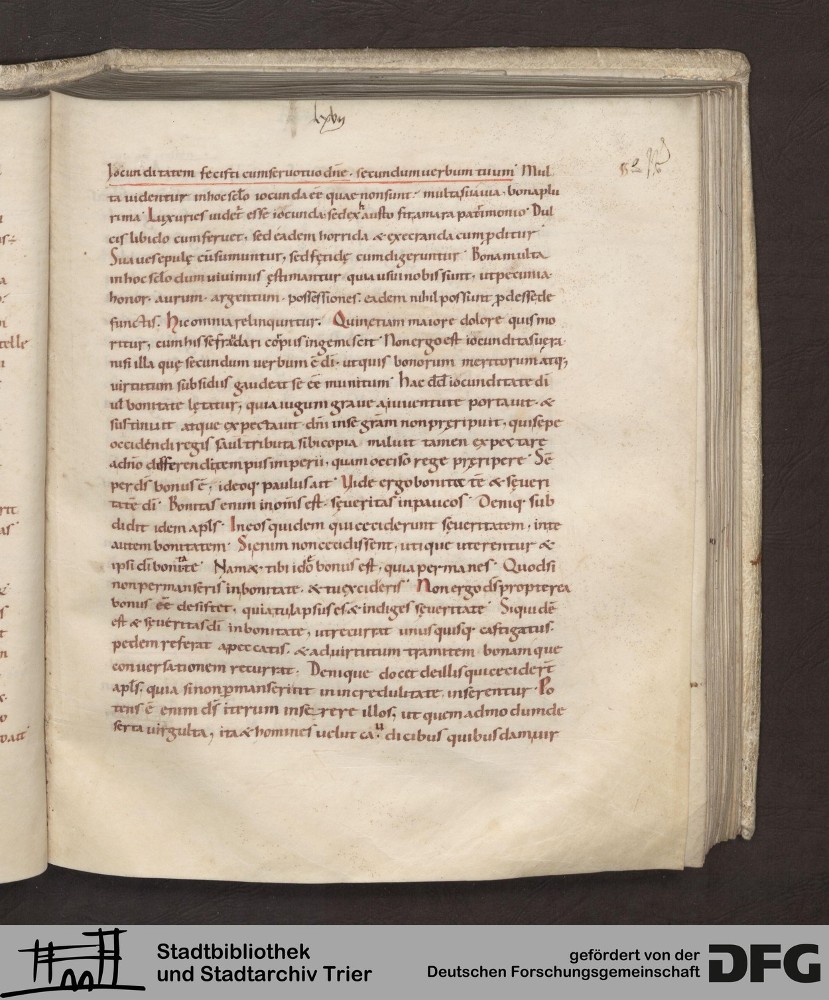 lxvii
Iocunditatem fecisti cum servo tuo dn̄e · secundum verbum tuum · Mul
ta videntur in hoc sc̄lo iocunda eē quae non sunt · multa suavia · bona plu
rima · Luxuries videt̄ esse iocunda · sed exhausto fit amara patrimonio · Dul
cis libido cum fervet · sed eadem horrida & execranda cum p̄ditur ·
Suaves epulę cū sumuntur, sed fętidę cum digeruntur · Bona multa
in hoc sc̄lo dum vivimus ęstimantur · quia usui nobis sunt, ut pecunia
honor · aurum · argentum · possessiones · eadem nihil possunt p̄desse de
functis · Hic omnia relinquntur · Quin etiam maiore dolore quis mo
ritur, cum his se fraudari copiis ingemescit · Non ergo est iocunditas vera ·
nisi illa quę secundum verbum ē dī · ut quis bonorum meritorum atq;
virtutum subsidiis gaudeat se eē munitum · Hac dd̄ iocunditate dī
vl bonitate lętatur, quia iugum grave a iuventute portavit · &
sustinuit atque expectavit · dn̄i in se gr̄am non pręripuit, qui sępe
occidendi regis saul tributa sibi copia maluit tamen expectare
a dn̄o differendi tempus imperii, quam occiso rege pręripere · Sē
per ds̄ bonus ē, ideoq· paulus ait · Vide ergo bonitatē & severi
tatē dī · Bonitas enim in om̄s est · severitas in paucos · Deniq· sub
didit idem apl̄s · In eos quidem qui ceciderunt severitatem, in te
autem bonitatem · Si enim non cecidissent, utique uterentur &
ipsi dī bonitate · Nam & tibi ideo bonus est, quia permanes · Quod si
non permanseris in bonitate · & tu excideris · Non ergo ds̄ propterea
bonus eē desistet, quia tu lapsus es & indiges severitate · Siquidē
est & severitas dī in bonitate, ut recurrat unusquisq· castigatus ·
pedem referat a peccatis · & ad virtutum tramitem bonam que
conversationem recurrat · Denique docet de illis qui cecidert̄
apl̄s · quia si non p̄manserint in incredulitate inserentur · Po
tens ē enim ds̄ iterum inserere illos, ut quemadmodum de
serta virgulta, ita & homines velut caudicibus quibusdam vir
Stadtbibliothek
und Stadtarchiv Trier
gefördert von der
Deutschen Forschungsgemeinschaft
DFG